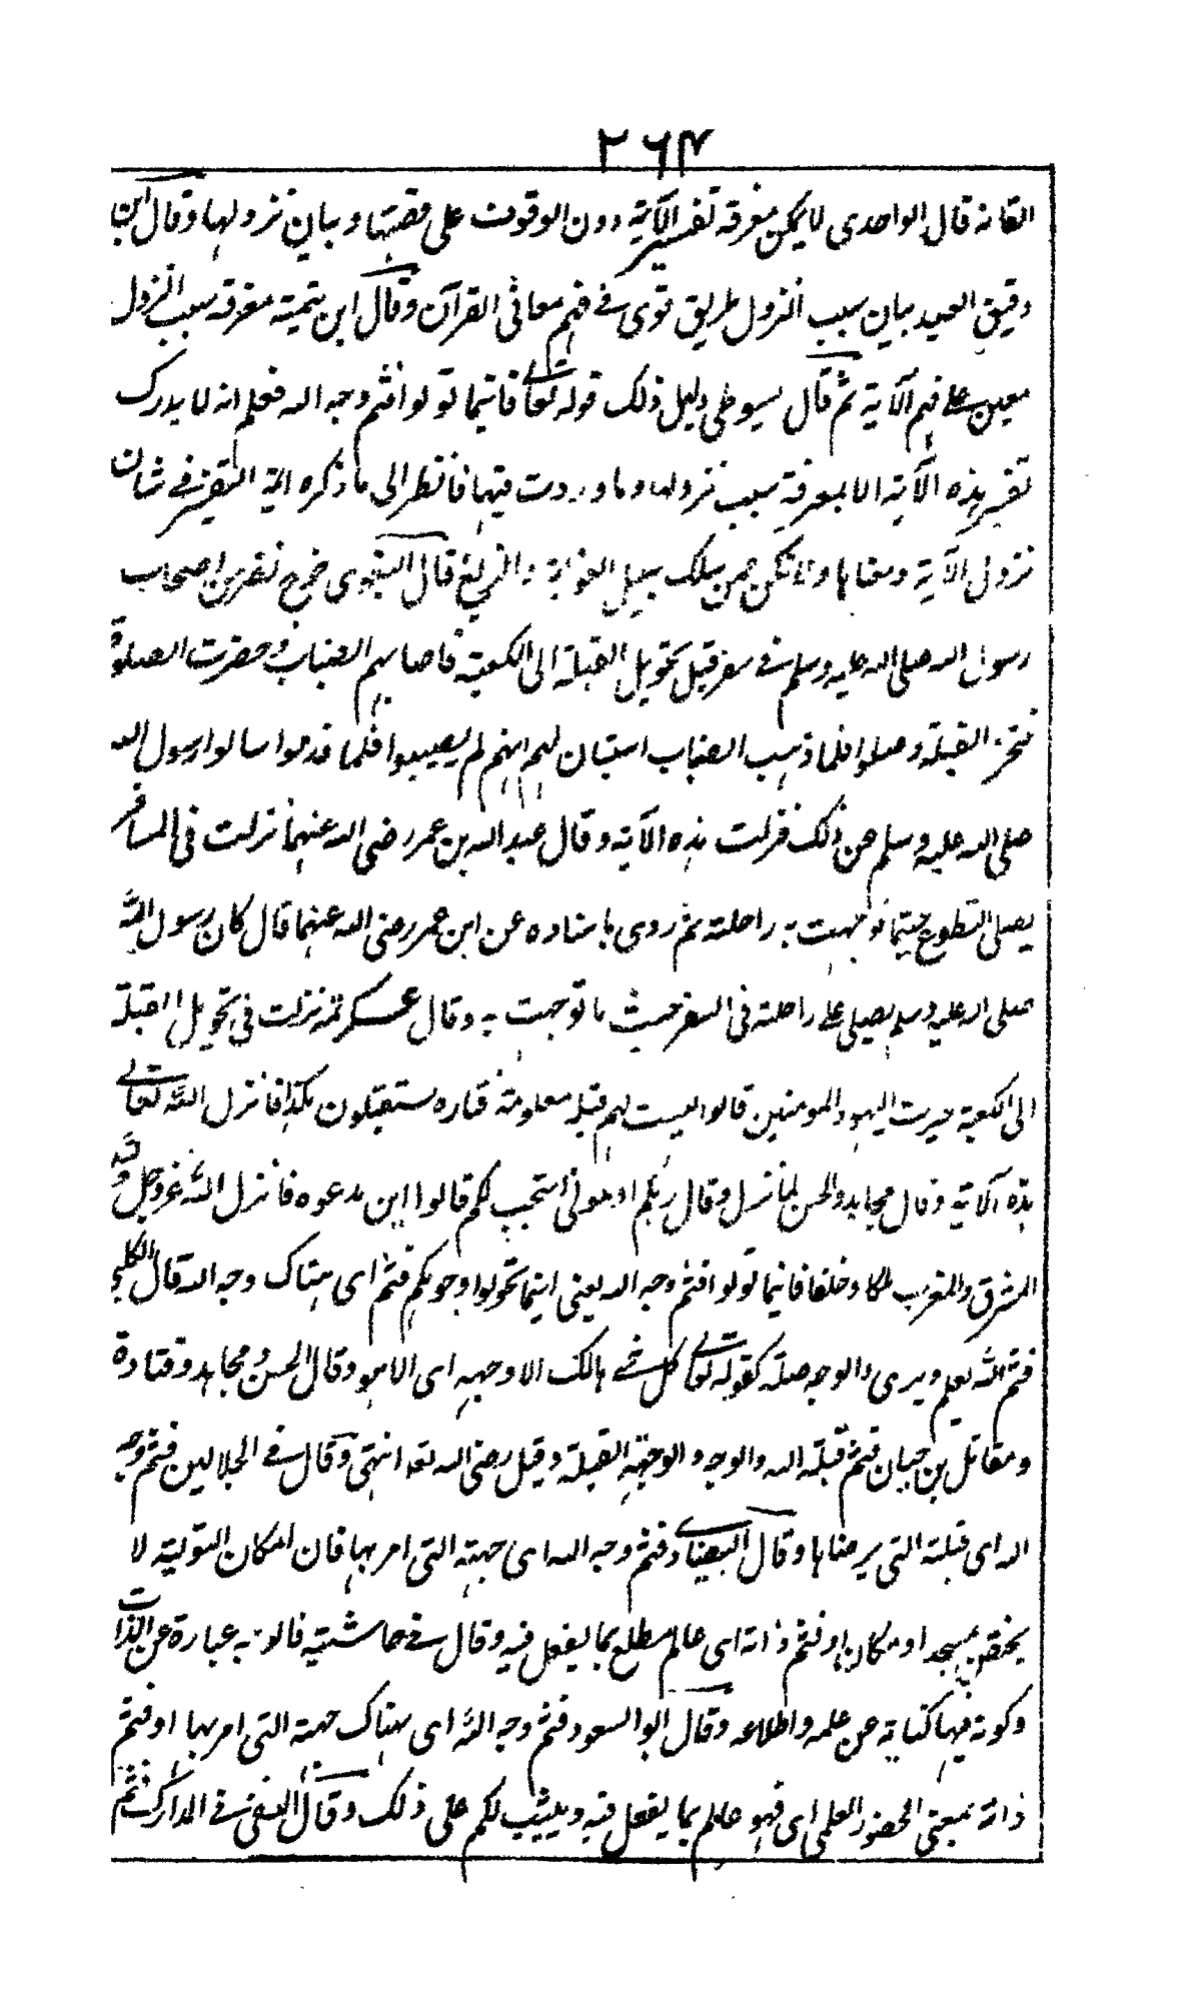 ۲۶۴
القانه قال الواحدى لا يمكن معرفة تفسير الآية دون الوقوف على قصتها وبيان نزولها وقال ابن
دقيق العيد بيان سبب النزول طريق قوى فى فهم معانى القرآن وقال ابن تيمية معرفة سبب النزول
معين على فهم الآية ثم قال سيوطى دليل ذلك قوله تعالى فاينما تولوا فثم وجه الله فعلم انه لا يدرك
تفسير هذه الآية الا بمعرفة سبب نزولها وما وردت فيها فانظر الى ما ذكره ائمة التفسير فى شان
نزول الآية ومعناها ولا تكن ممن سلك سبيل الغواية والزيغ قال البغوى خرج نفر من اصحاب
رسول الله صلى الله عليه وسلم فى سفر قبل تحويل القبلة الى الكعبة فاصابهم الضباب وحضرت الصلوة
فتحروا القبلة وصلوا فلما ذهب الضباب استبان لهم انهم لم يصيبوا فلما قدموا سالوا رسول الله
صلى الله عليه وسلم عن ذلك فنزلت هذه الآية وقال عبد الله بن عمر رضى الله عنهما نزلت فى المسافر
يصلى التطوع حيثما توجهت به راحلته ثم روى باسناده عن ابن عمر رضى الله عنهما قال كان رسول الله
صلى الله عليه وسلم يصلى على راحلته فى السفر حيث ما توجهت به وقال عسكرمة نزلت فى تحويل القبلة
الى الكعبة عيرت اليهود المومنين قالوا ليست لهم قبلة معلومة فتارة يستقبلون هكذا فانزل الله تعالى
هذه الآية وقال مجاهد والحسن لما نزل وقال ربكم ادعونى استجب لكم قالوا اين ندعوه فانزل الله عز وجل ولله
المشرق والمغرب ملكا وخلقا فاينما تولوا فثم وجه الله يعنى اينما تحولوا وجوهكم فثم اى هناك وجه الله قال الكلبى
فثم الله يعلم ويرى والوجه صلة كقوله تعالى كل شئ هالك الا وجهه اى الا هو وقال الحسن ومجاهد وقتادة
ومقاتل بن حيان فثم قبلة الله والوجه والوجهة القبلة وقيل رضى الله تعالى انتهى وقال فى الجلالين فثم وجه
الله اى قبلته التى يرضاها وقال البيضاوى فثم وجه الله اى جهته التى امر بها فان امكان التولية لا
يختص بمسجد او مكان او فثم ذاته اى عالم مطلع بما يفعل فيه وقال فى حاشيته فالوجه عبارة عن الذات
وكونه فيها كناية عن علمه واطلاعه وقال ابو السعود فثم وجه الله اى هناك جهته التى امر بها او فثم
ذاته بمعنى الحضور العلمى اى فهو عالم بما يفعل فيه ويثيب لكم على ذلك وقال النسفى فى المدارك فثم